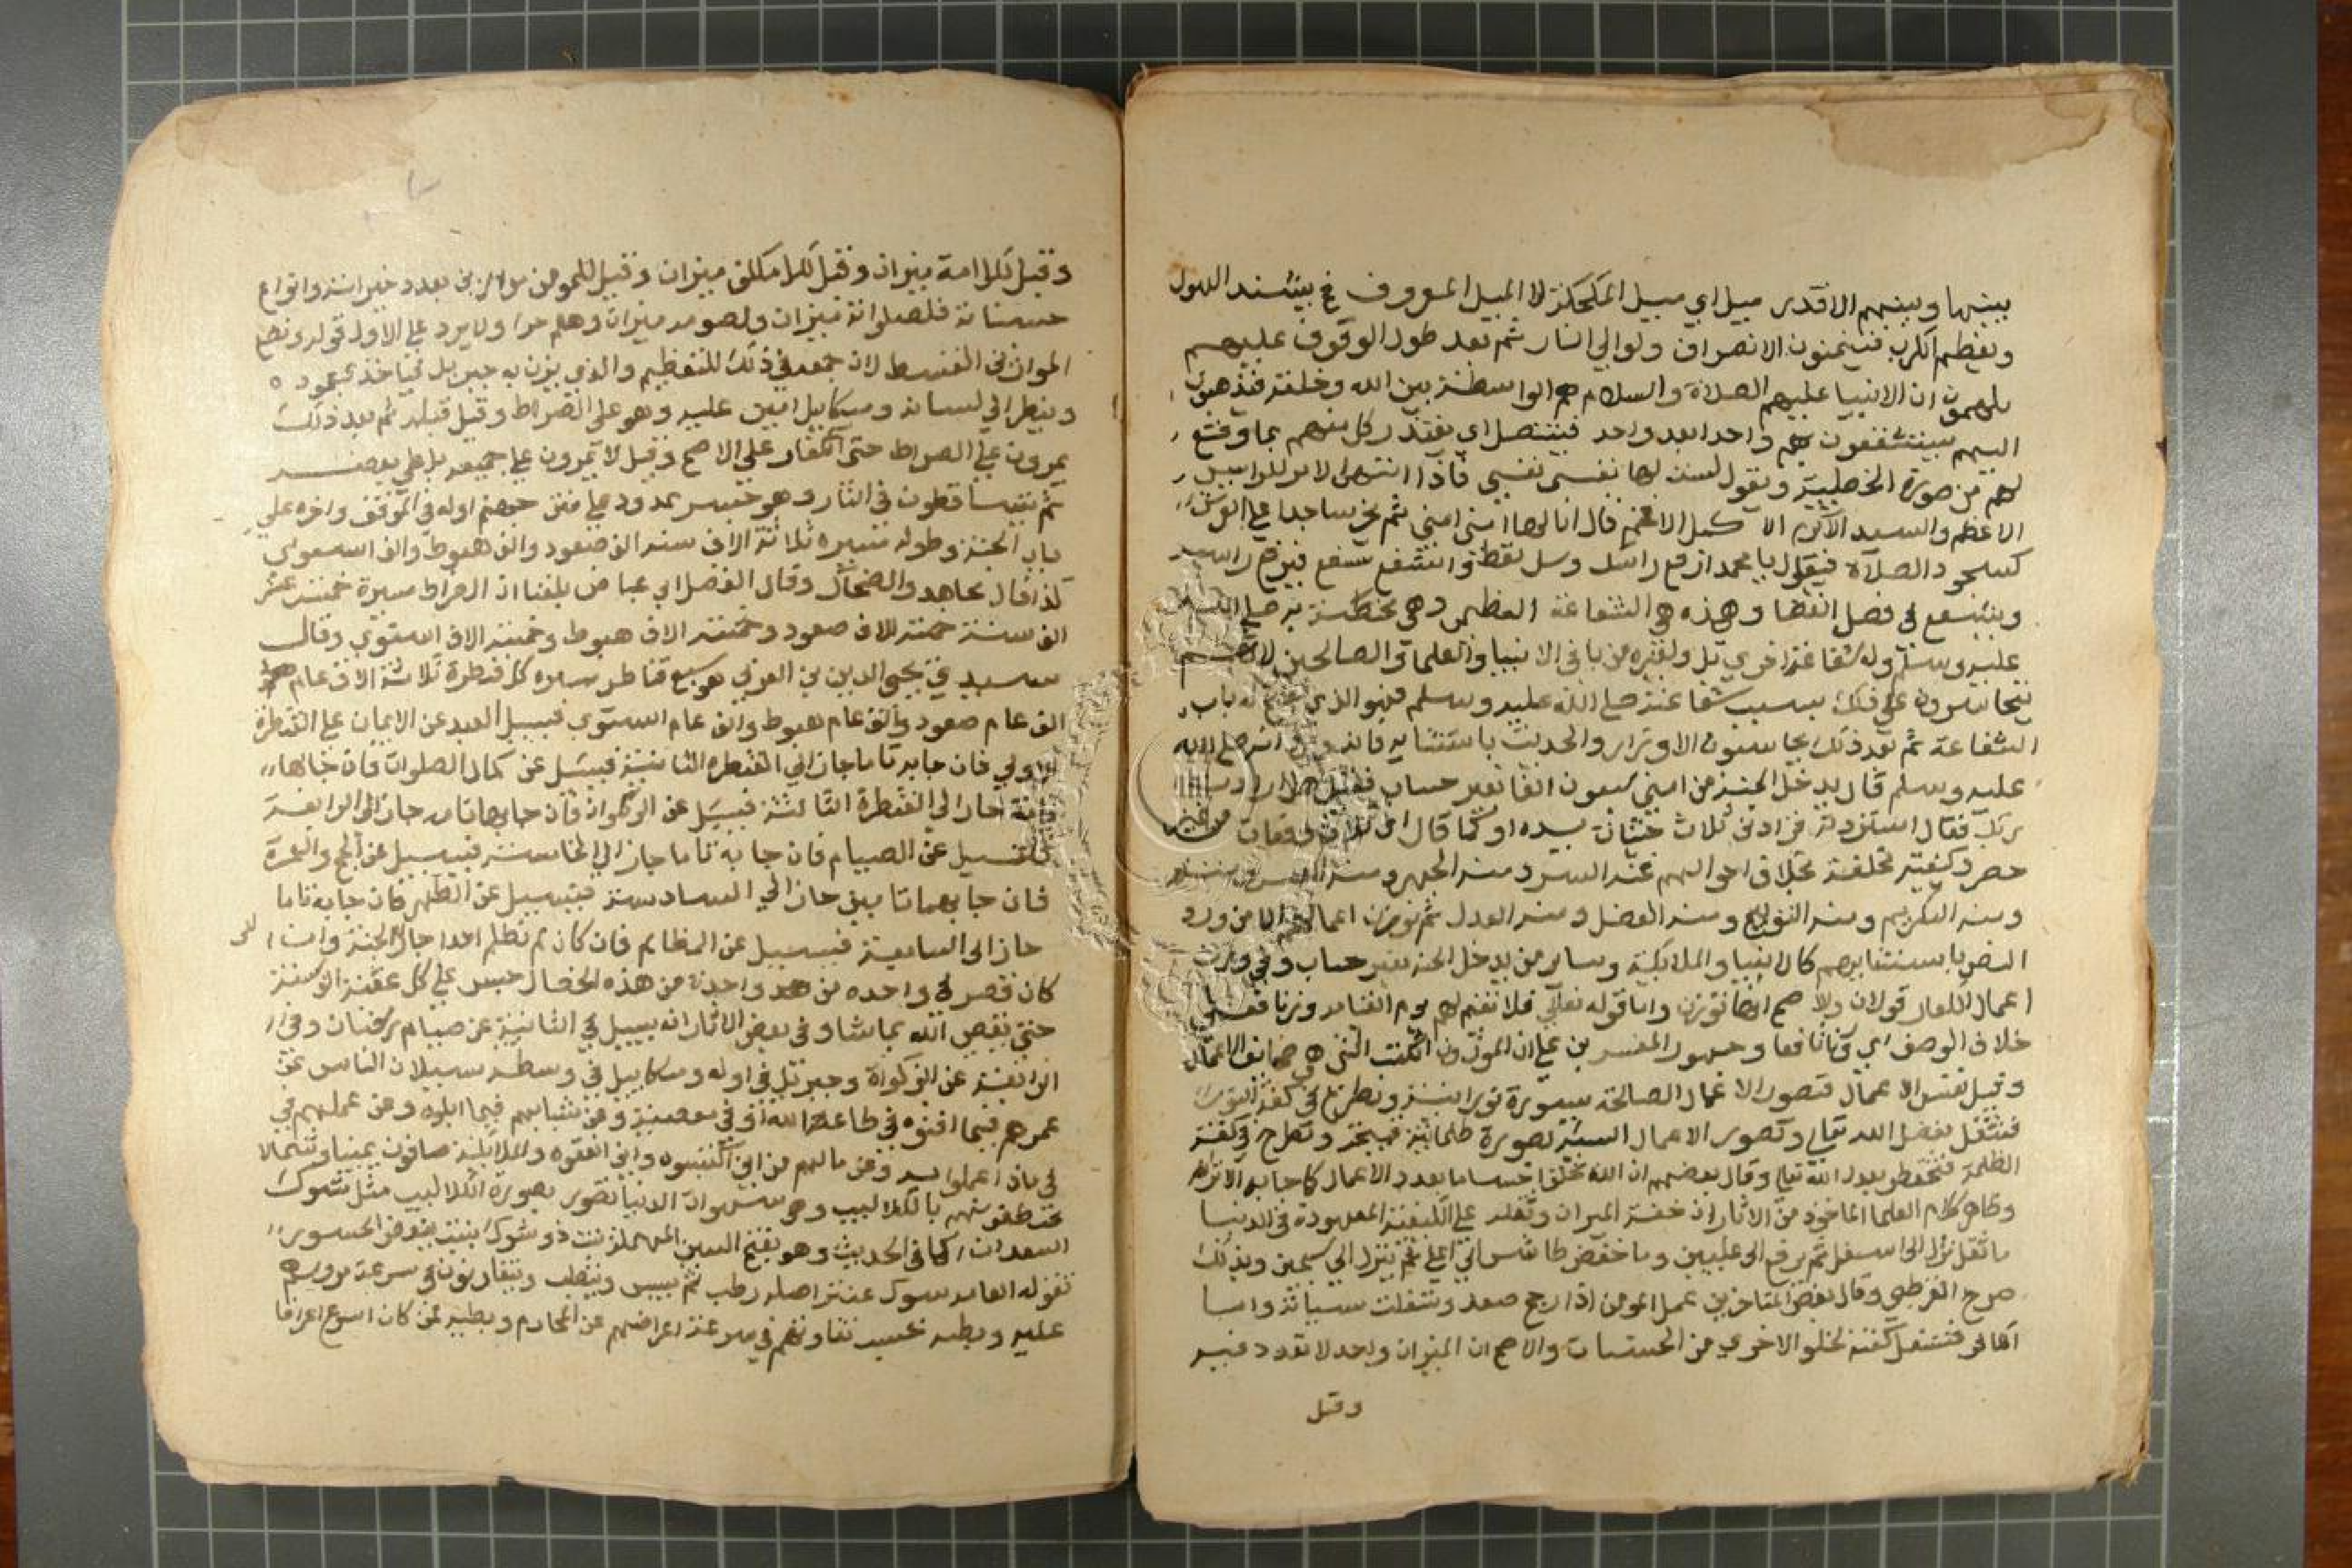 بينها وبينهم الا قدر ميل اي ميل المكحلة لا الميل المعروف فيشتد الهول
ويعظم الكرب فيتمنون الانصراف ولو الي النار ثم بعد طول الوقوف عليهم
يلهمون ان الانبيا عليهم الصلاة والسلام هم الواسطة بين الله وخلقه فيذهبون
اليهم يستشفعون بهم واحدا بعد واحد فيتنصل اي يعتذر كل منهم بما وقع
لهم من صورة الخطيية ويقول لست لها نفسي نفسي فاذا انتهي الامر للرسول
الاعظم والسيد الاكرم الا كمل الافخم قال انا لها امتي امتي ثم يخر ساجدا علي العرش
كسجود الصلاة فيقول يا محمد ارفع راسك وسل تعط واشفع تشفع فيرفع راسه
ويشفع في فصل القضا وهذه هي الشفاعة العظمي وهي مختصة به صلي الله
عليه وسلم وله شفاعة اخري بل ولغيره من باقي الانبيا والعلما والصالحين لانهم
يتجاسرون علي ذلك بسبب شفاعته صلي الله عليه وسلم فهو الذي فتح له باب
الشفاعة ثم بعد ذلك يحاسبون الا وترار والحديث باستثنايه فانه ورد انه صلي الله
عليه وسلم قال يدخل الجنة من امتي سبعون الفا بغير حساب فقيل هلا استزدت
ربك فقال استزدته فزادني ثلاث حثيات بيده او كما قال اي ثلاث دفعات من غير
حصر وكيفيته مختلفة باختلاف احوالهم فمنه السر ومنه الجهر ومنه اليسر ومنه
ومنه التكريم ومنه التوبيخ ومنه الفضل ومنه العدل ثم توزن اعمالهم الا من ورد
النص باستثنايهم كالانبيا والملايكة وساير من يدخل الجنة بغير حساب وفي وزن
اعمال الكفار قولان والاصح انها توزن واما قوله تعالي فلا نقيم لهم يوم القيامة وزنا فعلي
خلاف الوصف اي وزنا نافعا وجمهور المفسرين علي ان الموزون الكتب التي هي صحايف الاعمال
وقيل نفس الاعمال فتصور الاعمال الصالحة بصورة نورانية وتطرح في كفة النور
فتثقل بفضل الله تعالي وتصور الاعمال السيئة بصورة ظلمانية قبيحة وتطرح في كفة
الظلمة فتخف بعدل الله تعالي وقال بعضهم ان الله يخلق اجساما بعدد الاعمال كما جا به الاثر
وظاهر كلام العلما الماخوذ من الاثار ان خفة الميزان وثقله علي الكيفية المعهودة في الدنيا
ما ثقل نزل الي اسفل ثم يرفع الي عليين وما خف طاش الي اعلي ثم ينزل الي سجين وبذلك
صرح القرطبي وقال بعض المتاخرين عمل المومن اذا رجح صعد وتثقلت سيياته واما
الكافر فتثقل كفته لخلو الاخري من الحسنات والاصح ان الميزان واحد لا تعدد فيه
وقيل
وقيل لكل امة ميزان وقيل لكل مكلف ميزان وقيل للمومن موازين بعدد خيراته وانواع
حسناته فلصلواته ميزان ولصومه ميزان وهلم جرا ولا يرد علي الاول قوله ونضع
الموازين القسط لان جمعه في ذلك للتعظيم والذي يزن به جبريل فياخذ بعموده
وينظر الي لسانه وميكاييل امين عليه وهو علي الصراط وقيل قبله ثم بعد ذلك
يمرون علي الصراط حتي الكفار علي الاصح وقيل لا يمرون علي جميعه بل علي بعضه
ثم يتساقطون في النار وهو جسر ممدود علي متن جهنم اوله في الموقف واخره علي
باب الجنة وطوله مسيرة ثلاثة الاف سنة الف صعود والف هبوط والف استوي
كذا قال مجاهد والضحاك وقال الفضل ابي عياض بلغنا ان الصراط مسيرة خمسة عشر
الف سنة خمسة الاف صعود وخمسة الاف هبوط وخمسة الاف استوي وقال
سيدي محيي الدين بن العربي هو سبع قناطر مسيرة كل قنطرة ثلاثة الاف عام
الف عام صعود والف عام هبوط والف عام استوي فيسيل العبد عن الايمان علي القنطرة
الاولي فان جا به تاما جاز الي القنطرة الثانية فيسيل عن كمال الصلوات فان جا بها
تامة جاز الي القنطرة الثالثة فيسيل عن الزكوات فان جا بها تامة جاز الي الرابعة
فيسيل عن الصيام فان جا به تاما جاز الي الخامسة فيسيل عن الحج والعمرة
فان جا بهما تامين جاز الي السادسة فيسيل عن الطهر فان جا به تاما
جاز الي السابعة فيسيل عن المظالم فان كان لم يظلم احدا جاز الي الجنة وان
كان قصر في واحده من هذه الخصال حبس علي كل عقبة الف سنة
حتي يقضي الله بما شا وفي بعض الاثار انه يسيل في الثانية عن صيام رمضان وفي
الرابعة عن الزكواة وجبريل في اوله وميكاييل في وسطه يسيلان الناس عن
عمرهم فيما افنوه في طاعة الله او في معصيته وعن شبابهم فيما ابلوه وعن علمهم
ماذا عملوا به وعن مالهم من اين اكتسبوه واين انفقوه والملايكة صافون يمينا وشمالا
يخطفونهم بالكلاليب وهي شهوات الدنيا تصور بصورة الكلاليب مثل شوك
السعدان كما في الحديث وهو بفتح السين المهملة نبت ذو شوك ينبت ببعض الجسور
تقول له العامة شوك عنتر اصله رطب ثم ييبس ويصلب ويتفاوتون في سرعة مرورهم
عليه وبطيه بحسب تفاوتهم في سرعة اعراضهم عن المحارم وبطيه فمن كان اسرع اعراضا